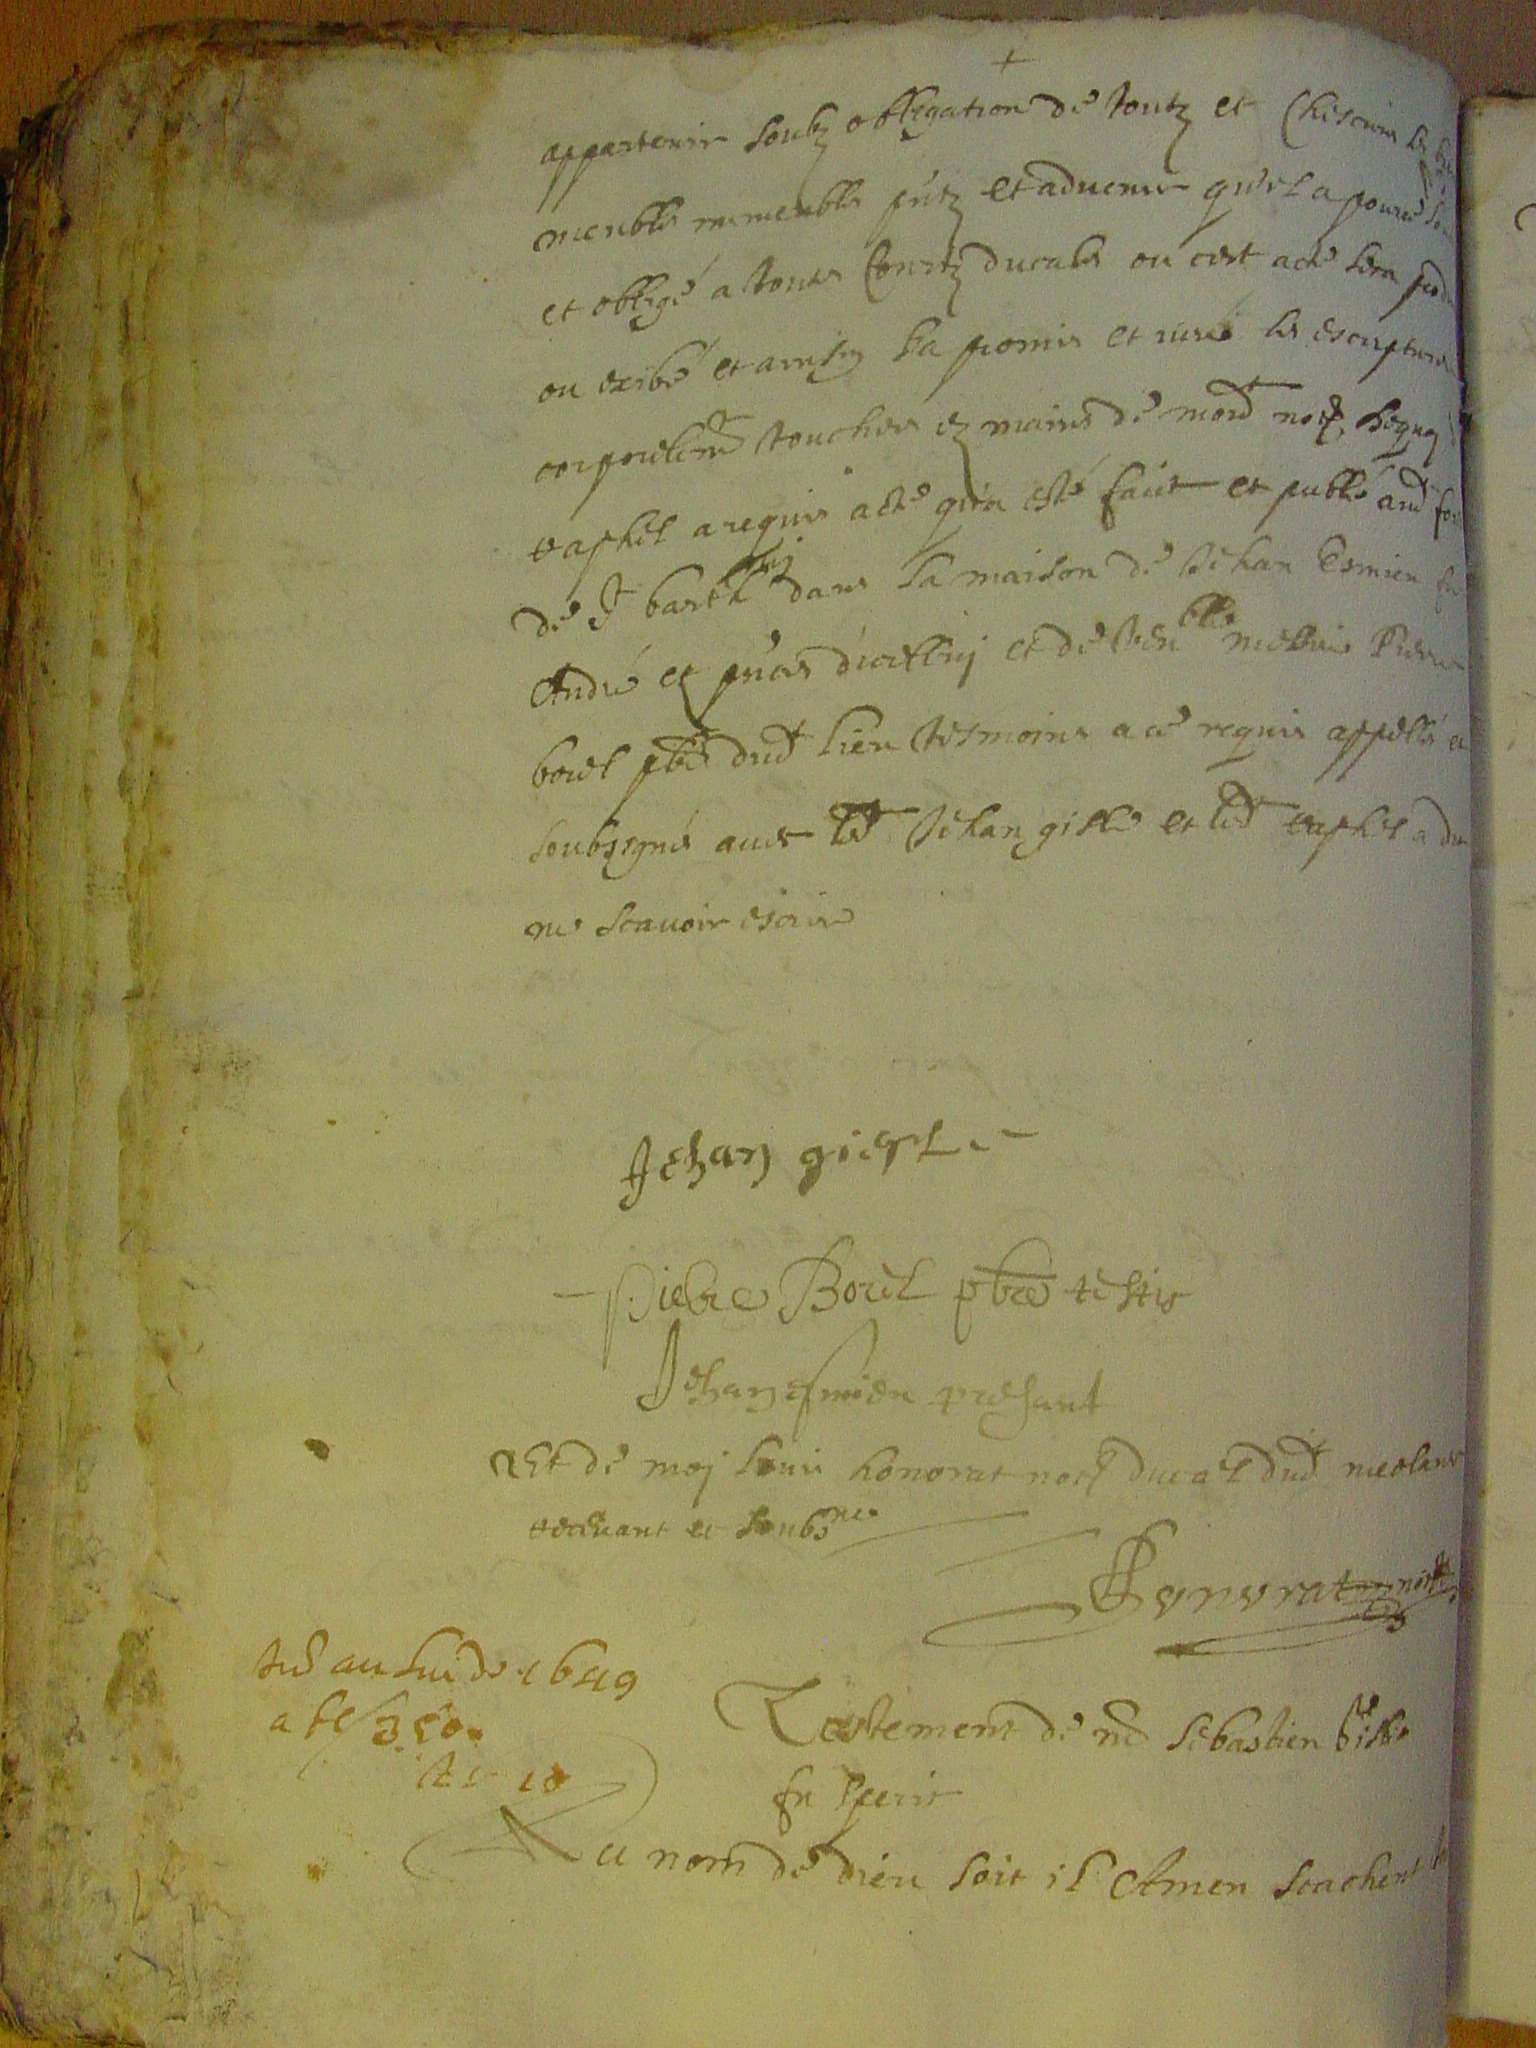 appartenir soubz obligation de toutz et chescuns ses
meubles immeubles pntz et aduenir qu'il a pource
et obligé a toutes Courtz ducales ou cest acte sera
ou exibé et ainsy l'a promis et juré les escriptures
corporelemt touchees ez mains de mond nore, dequoy
raphel a requis acte qu'a esté faict et publié aud
de St barthmj dans la maison de Jehan Esmieu fu
André et pnces d'icelluj et de venble messire Pierre
borel pbre dud lieu tesmoins a ce requis appellés et
soubzsignés auec led Jehan gisle et led raphel a dit
ne scauoir escrire
Jehan
Pierre Borel pbre testis
Jehan esmieu presant
Et de moj Louis honorat nore ducal dud meolans
receuant et soubsne
Honorat nore
au de 1649
a 350
10
Testement de me Sebastien
fu Sperit
Au nom de dieu soit il Amen Scachent